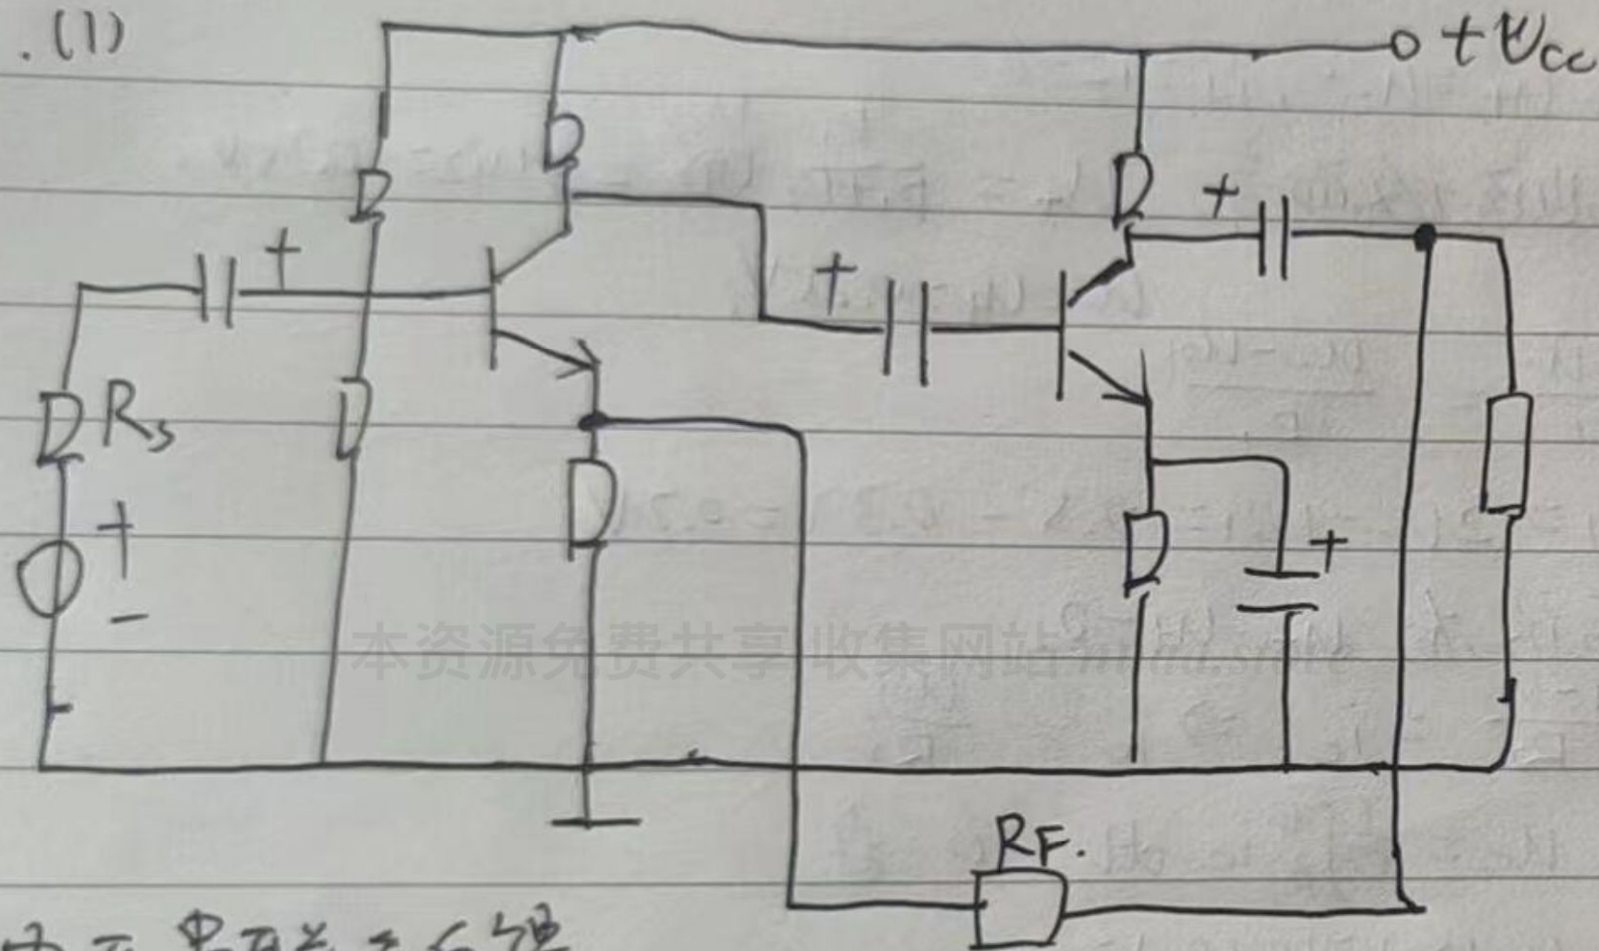 .(1)
+Vcc
+
+
+
Rs
+
-
+
本资源免费共享 收集网站
RF.